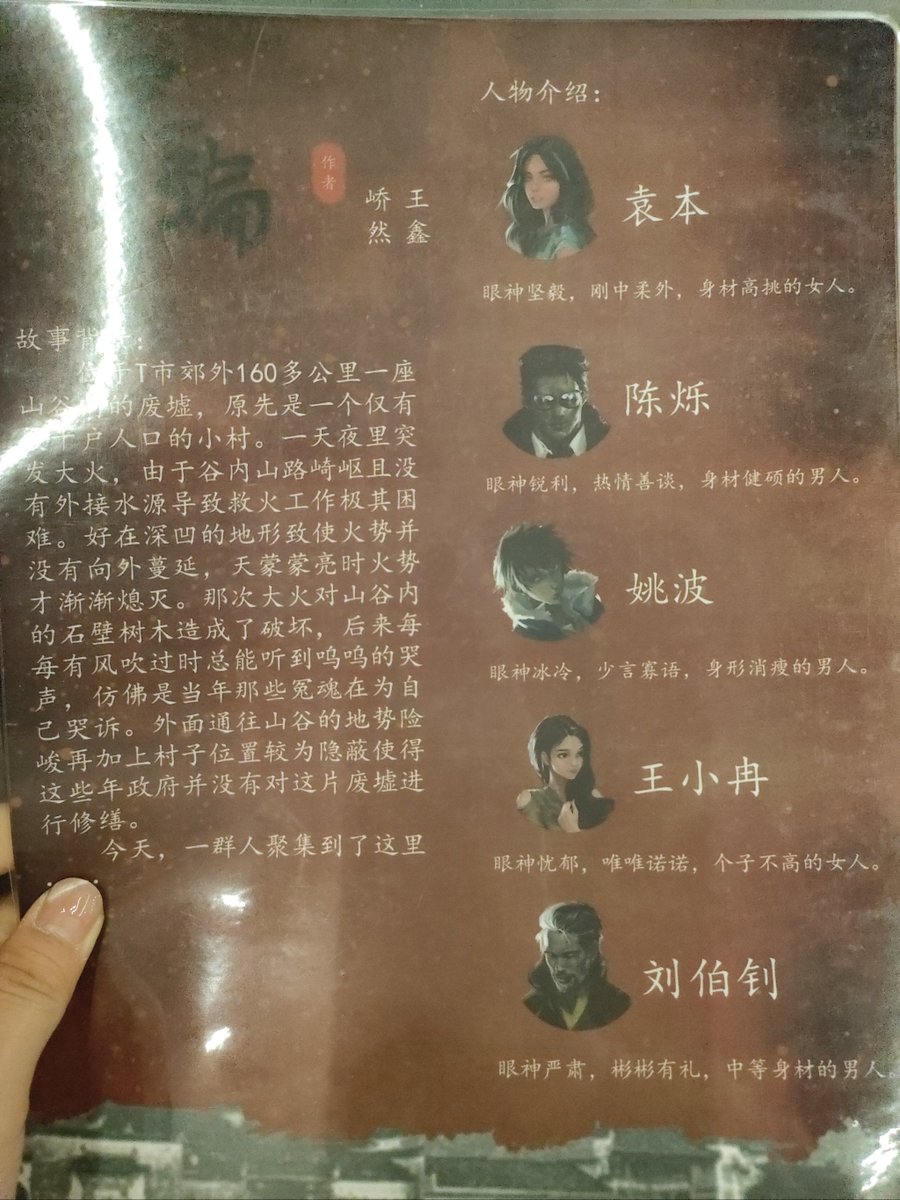 瑞
作者
王鑫
峤然
故事背：
于T市郊外160多公里一座
山谷的废墟，原先是一个仅有
千户人口的小村。一天夜里突
发大火，由于谷内山路崎岖且没
有外接水源导致救火工作极其困
难。好在深凹的地形致使火势并
没有向外蔓延，天蒙蒙亮时火势
才渐渐熄灭。那次大火对山谷内
的石壁树木造成了破坏，后来每
每有风吹过时总能听到呜呜的哭
声，仿佛是当年那些冤魂在为自
己哭诉。外面通往山谷的地势险
峻再加上村子位置较为隐蔽使得
这些年政府并没有对这片废墟进
行修缮。
今天，一群人聚集到了这里
人物介绍：
袁本
眼神坚毅，刚中柔外，身材高挑的女人。
陈烁
眼神锐利，热情善谈，身材健硕的男人。
姚波
眼神冰冷，少言寡语，身形消瘦的男人。
王小冉
眼神忧郁，唯唯诺诺，个子不高的女人。
刘伯钊
眼神严肃，彬彬有礼，中等身材的男人。